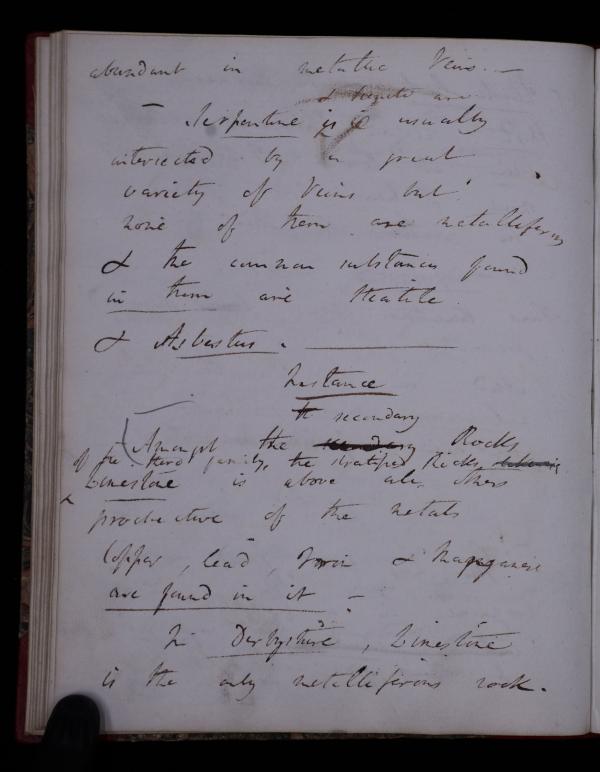 abundant in metallic Veins. —
& Sienite are
— Serpentine is usually
intersected by a great
variety of Veins but
none of them are metalliferous
& the common substances found
in them are Steatite
& Asbestus. —
Instance
secondary
Amongst the secondary Rocks
of the third family, the stratified Rocks
Limestone is above all others
productive of the metals
Copper, lead, Iron & Manganese
are found in it —
In Derbyshire, Limestone
is the only metalliferous rock.